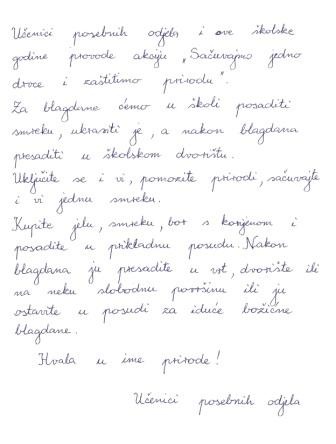 Učenici posebnih odjela i ove školske
godine provode akciju „Sačuvajmo jedno
drvce i zaštitimo prirodu".
Za blagdane ćemo u školi posaditi
smreku, ukrasiti je, a nakon blagdana
presaditi u školskom dvorištu.
Uključite se i vi, pomozite prirodi, sačuvajte
i vi jednu smreku.
Kupite jelu, smreku, bor s korijenom i
posadite u prikladnu posudu. Nakon
blagdana ju presadite u vrt, dvorište ili
na neku slobodnu površinu ili ju
ostavite u posudi za iduće božićne
blagdane.
Hvala u ime prirode!
Učenici posebnih odjela